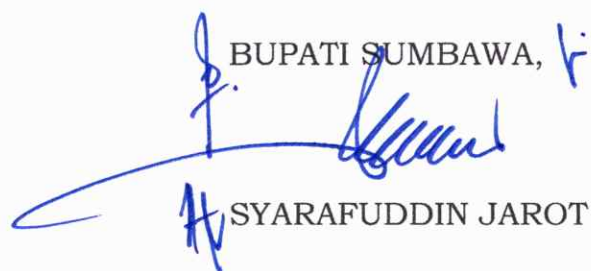 BUPATI SUMBAWA,
SYARAFUDDIN JAROT